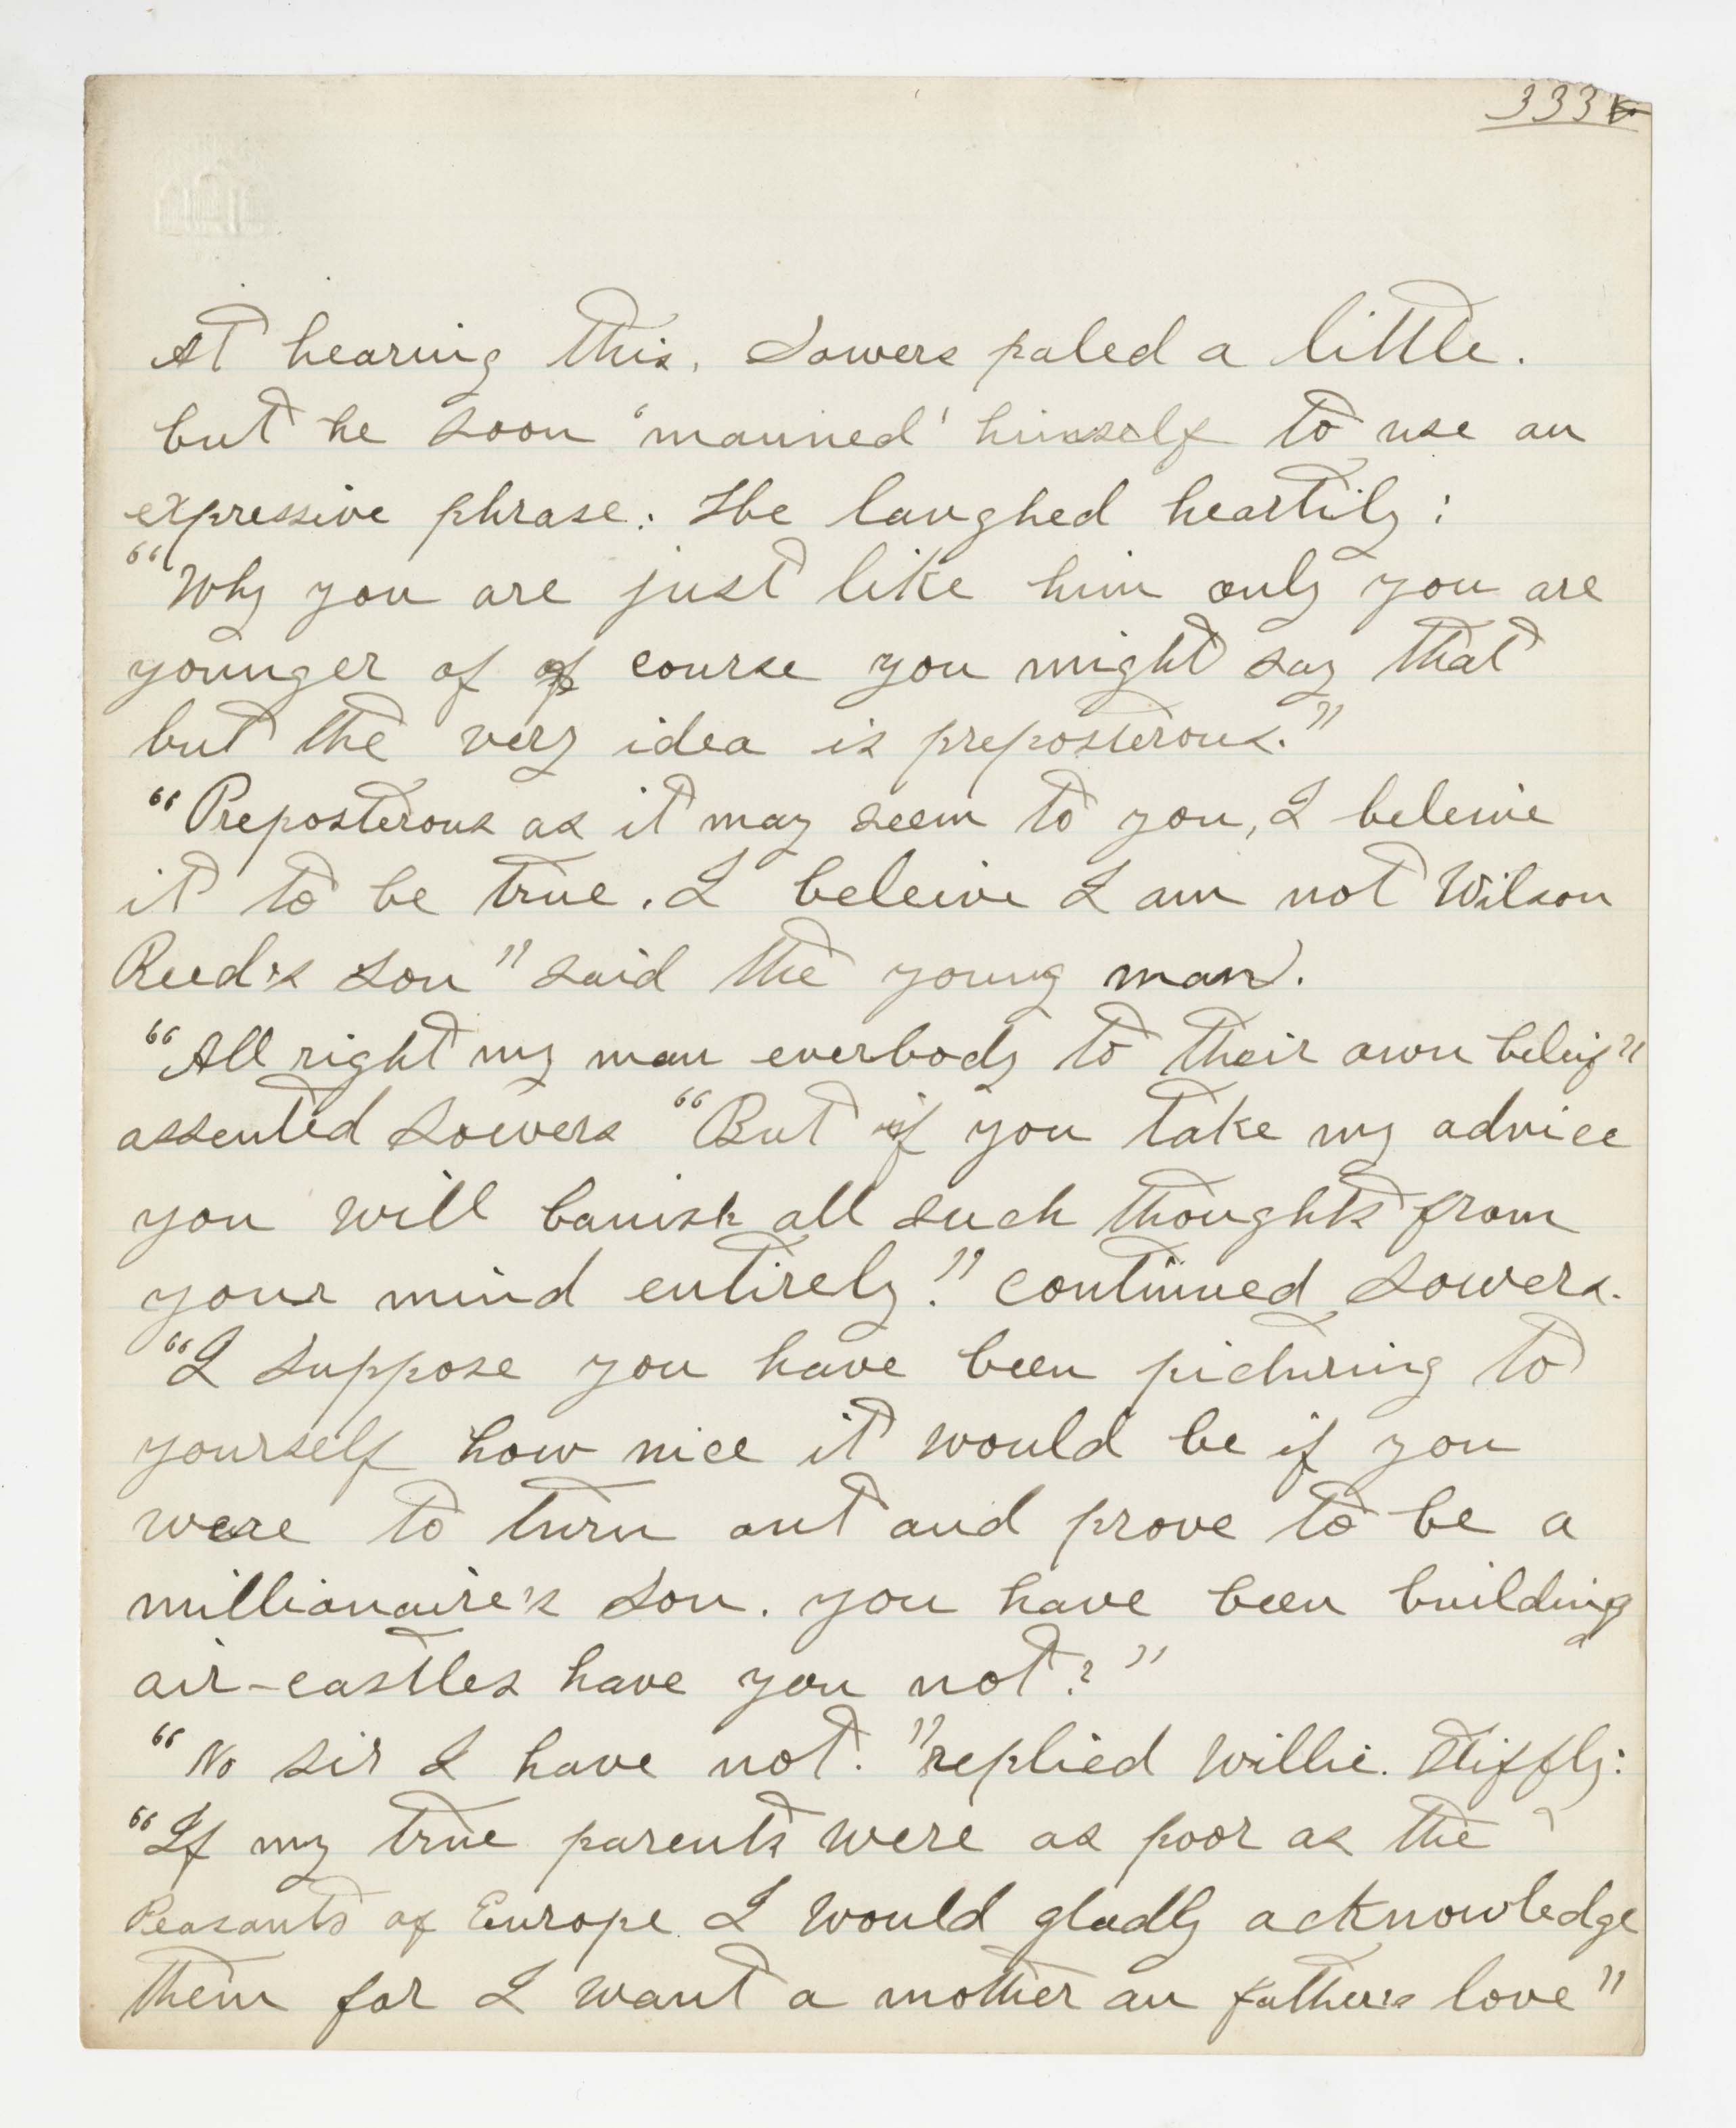 333
At hearing this, Sowers paled a little.
but he soon 'manned' himself to use an
expressive phrase: He laughed heartily:
"Why you are just like him only you are
younger of of course you might say that
but the very idea is preposterous."
"Preposterous as it may seem to you, I beleive
it to be true. I beleive I am not Wilson
Reed's son" said the young man.
"All right my man everbody to their own beleif"
assented Sowers "But if you take my advice
you will banish all such thoughts from
your mind entirely!" continued Sowers.
"I suppose you have been picturing to
yourself how nice it would be if you
were to turn out and prove to be a
millionaire's son. you have been building
air-castles have you not?"
"No sir I have not." replied Willie. Stiffly:
"If my true parents were as poor as the
Peasants of Europe I would gladly acknowledge
them for I want a mother an father's love"